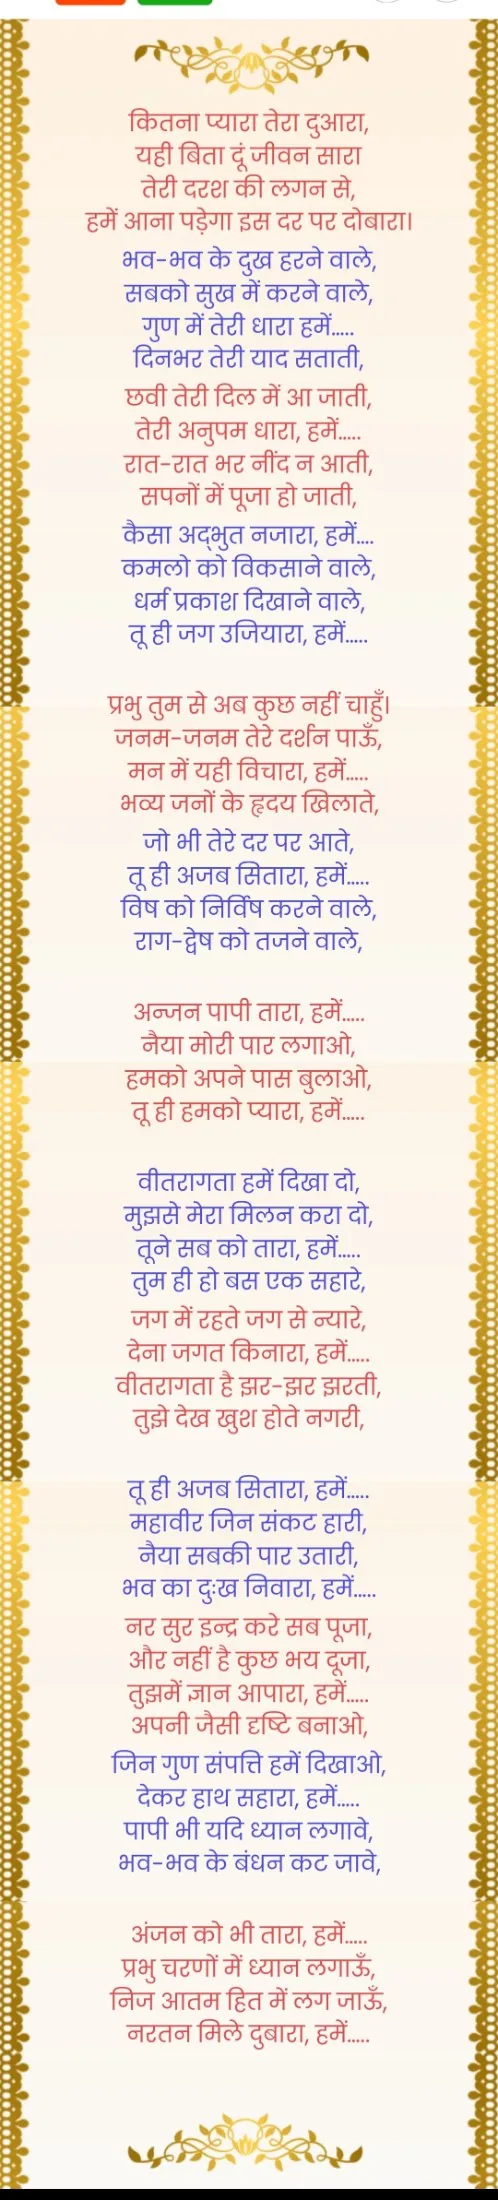 कितना प्यारा तेरा दुआरा,
यही बिता दूं जीवन सारा
तेरी दरश की लगन से,
हमें आना पड़ेगा इस दर पर दोबारा।
भव-भव के दुख हरने वाले,
सबको सुख में करने वाले,
गुण में तेरी धारा हमें.....
दिनभर तेरी याद सताती,
छवी तेरी दिल में आ जाती,
तेरी अनुपम धारा, हमें.....
रात-रात भर नींद न आती,
सपनों में पूजा हो जाती,
कैसा अद्भुत नजारा, हमें....
कमलो को विकसाने वाले,
धर्म प्रकाश दिखाने वाले,
तू ही जग उजियारा, हमें.....
प्रभु तुम से अब कुछ नहीं चाहूँ।
जनम-जनम तेरे दर्शन पाऊँ,
मन में यही विचारा, हमें.....
भव्य जनों के हृदय खिलाते,
जो भी तेरे दर पर आते,
तू ही अजब सितारा, हमें.....
विष को निर्विष करने वाले,
राग-द्वेष को तजने वाले,
अन्जन पापी तारा, हमें.....
नैया मोरी पार लगाओ,
हमको अपने पास बुलाओ,
तू ही हमको प्यारा, हमें.....
वीतरागता हमें दिखा दो,
मुझसे मेरा मिलन करा दो,
तूने सब को तारा, हमें.....
तुम ही हो बस एक सहारे,
जग में रहते जग से न्यारे,
देना जगत किनारा, हमें.....
वीतरागता है झर-झर झरती,
तुझे देख खुश होते नगरी,
तू ही अजब सितारा, हमें.....
महावीर जिन संकट हारी,
नैया सबकी पार उतारी,
भव का दुःख निवारा, हमें.....
नर सुर इन्द्र करे सब पूजा,
और नहीं है कुछ भय दूजा,
तुझमें ज्ञान आपारा, हमें.....
अपनी जैसी दृष्टि बनाओ,
जिन गुण संपत्ति हमें दिखाओ,
देकर हाथ सहारा, हमें.....
पापी भी यदि ध्यान लगावे,
भव-भव के बंधन कट जावे,
अंजन को भी तारा, हमें.....
प्रभु चरणों में ध्यान लगाऊँ,
निज आतम हित में लग जाऊँ,
नरतन मिले दुबारा, हमें.....